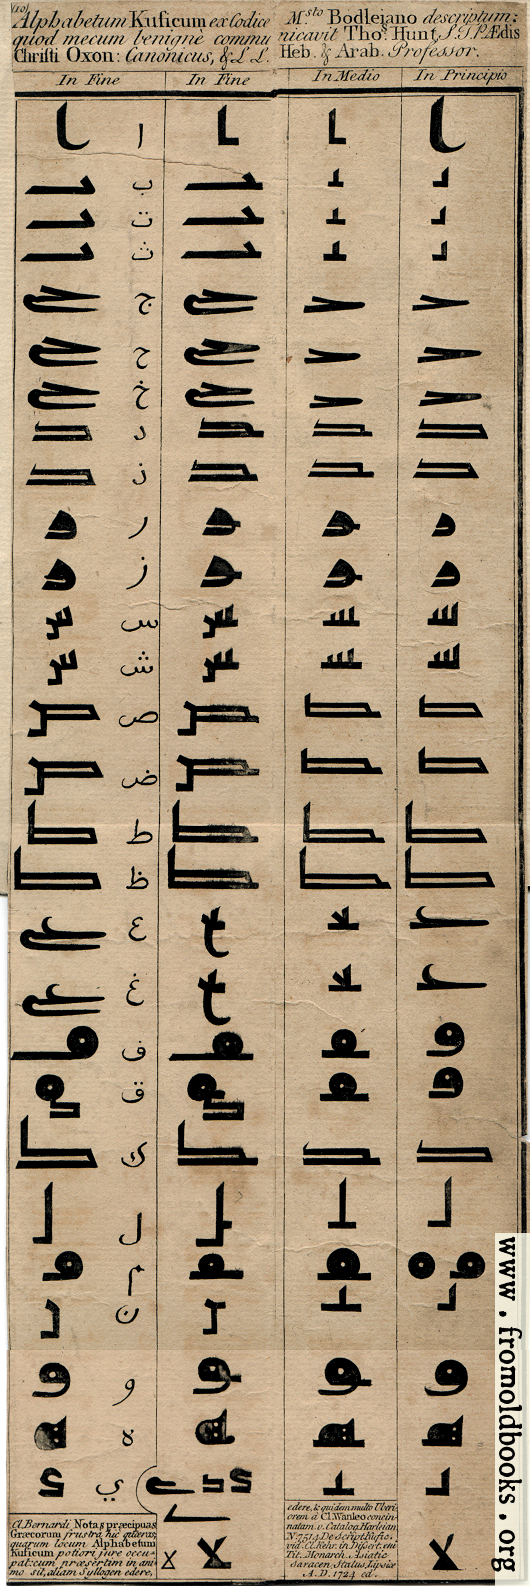 (10)
Alphabetum Kuficum ex Codice Msto Bodlejano descriptum:
quod mecum benignè communicavit Tho: Hunt, S.T.P. Ædis
Christi Oxon: Canonicus, & L L. Heb. & Arab. Professor.
In Fine In Fine In Medio In Principio
ا
ب
ت
ث
ج
ح
خ
د
ذ
ر
ز
س
ش
ص
ض
ط
ظ
ع
غ
ف
ق
ك
ل
م
ن
و
ه
ي
Cl. Bernardi Notas præcipuas
Græcorum frustra hic quæras,
quarum locum Alphabetum
Kuficum potiori jure occu-
pat: cum præsertim in ani-
mo sit, aliam Syllogen edere,
edere, & quidem multo Uberi-
orem à Cl. Wanleo concin-
natam. v. Catalog. Harleian.
N. 7514. De Script. Kufic.
vid. Cl. Kehr. in Dissert. cui
Tit. Monarch. Asiatic.
Saracen. Status, Lipsiæ
A.D. 1724 ed.
www.fromoldbooks.org